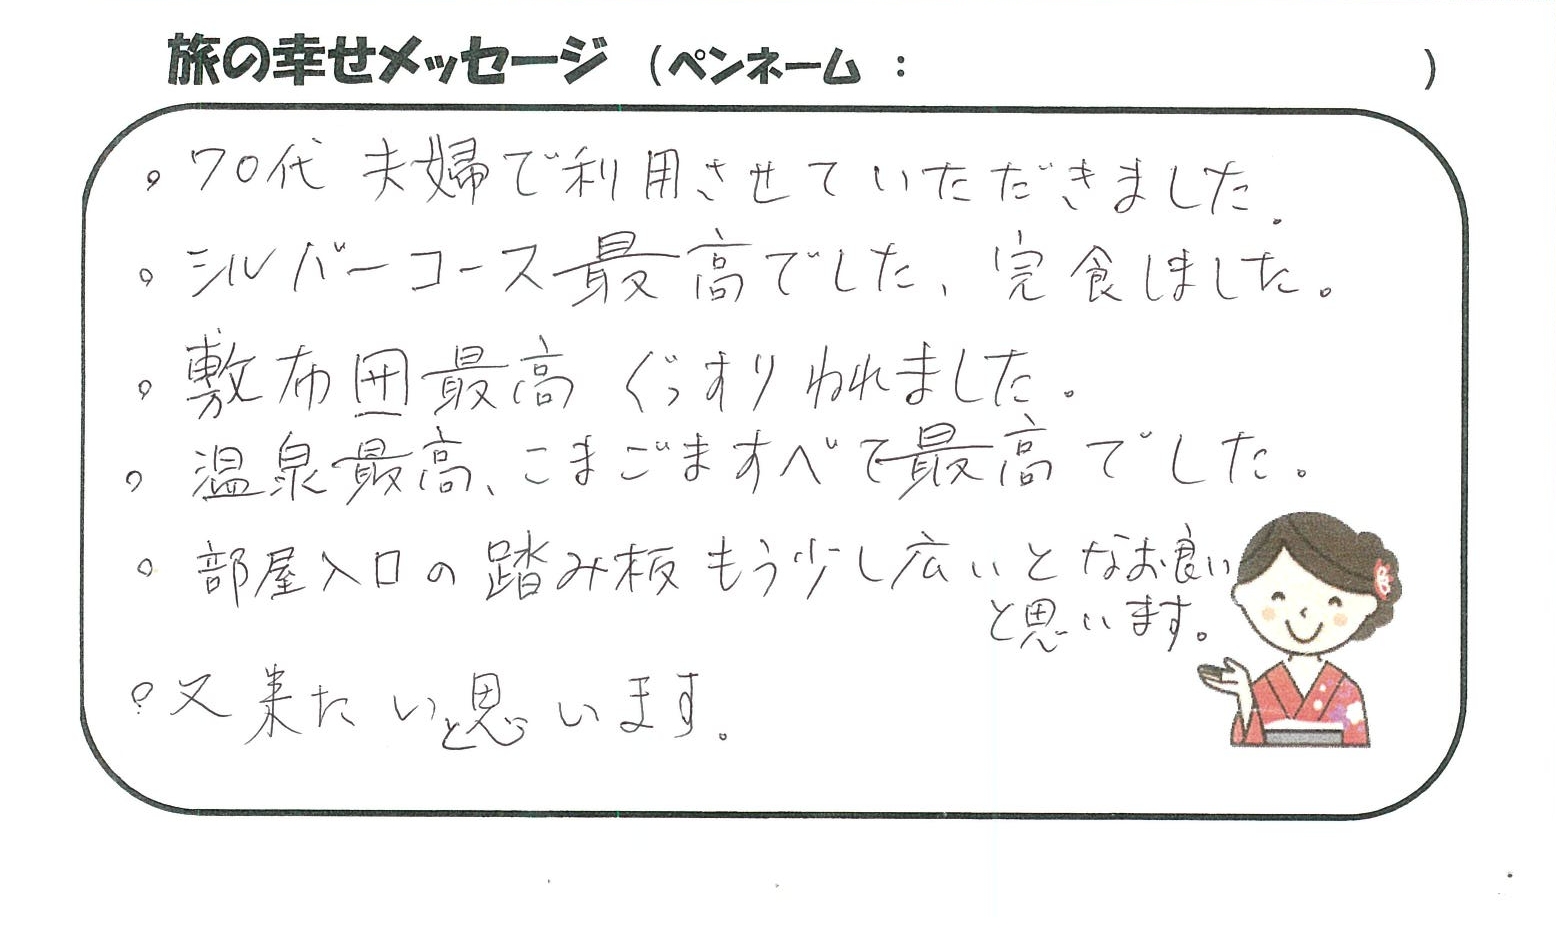 旅の幸せメッセージ (ペンネーム : )
。70代 夫婦で利用させていただきました.
。シルバーコース最高でした、完食しました。
。敷布囲最高 ぐっすりねれました。
。温泉最高、こまごますべて最高でした。
。部屋入口の踏み板もう少し広いとなお良い
と思います。
。又来たいと思います。